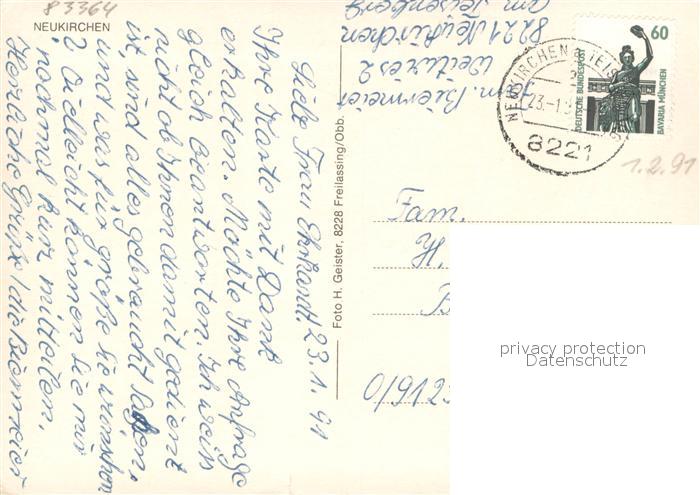 83364
NEUKIRCHEN
Liebe Frau Ehrhardt! 23.1.91
Ihre Karte mit Dank
erhalten. Möchte Ihre Anfrage
gleich beantworten. Ich weiß
nicht ob Ihnen damit gedient
ist, sind alles gebraucht
und was für größe Sie wünschen
? Vielleicht können Sie mir
nochmal kurz mitteilen,
Herzliche Grüße
Foto H. Geister, 8228 Freilassing/Obb.
Fam. Biermeier
Weitwies 2
8221 Neukirchen
am Teisenberg
NEUKIRCHEN B TEIS
23.-1.
8221
60
DEUTSCHE BUNDESPOST
BAVARIA MÜNCHEN
1.2.91
Fam.
H.
B
O/912
privacy protection
Datenschutz